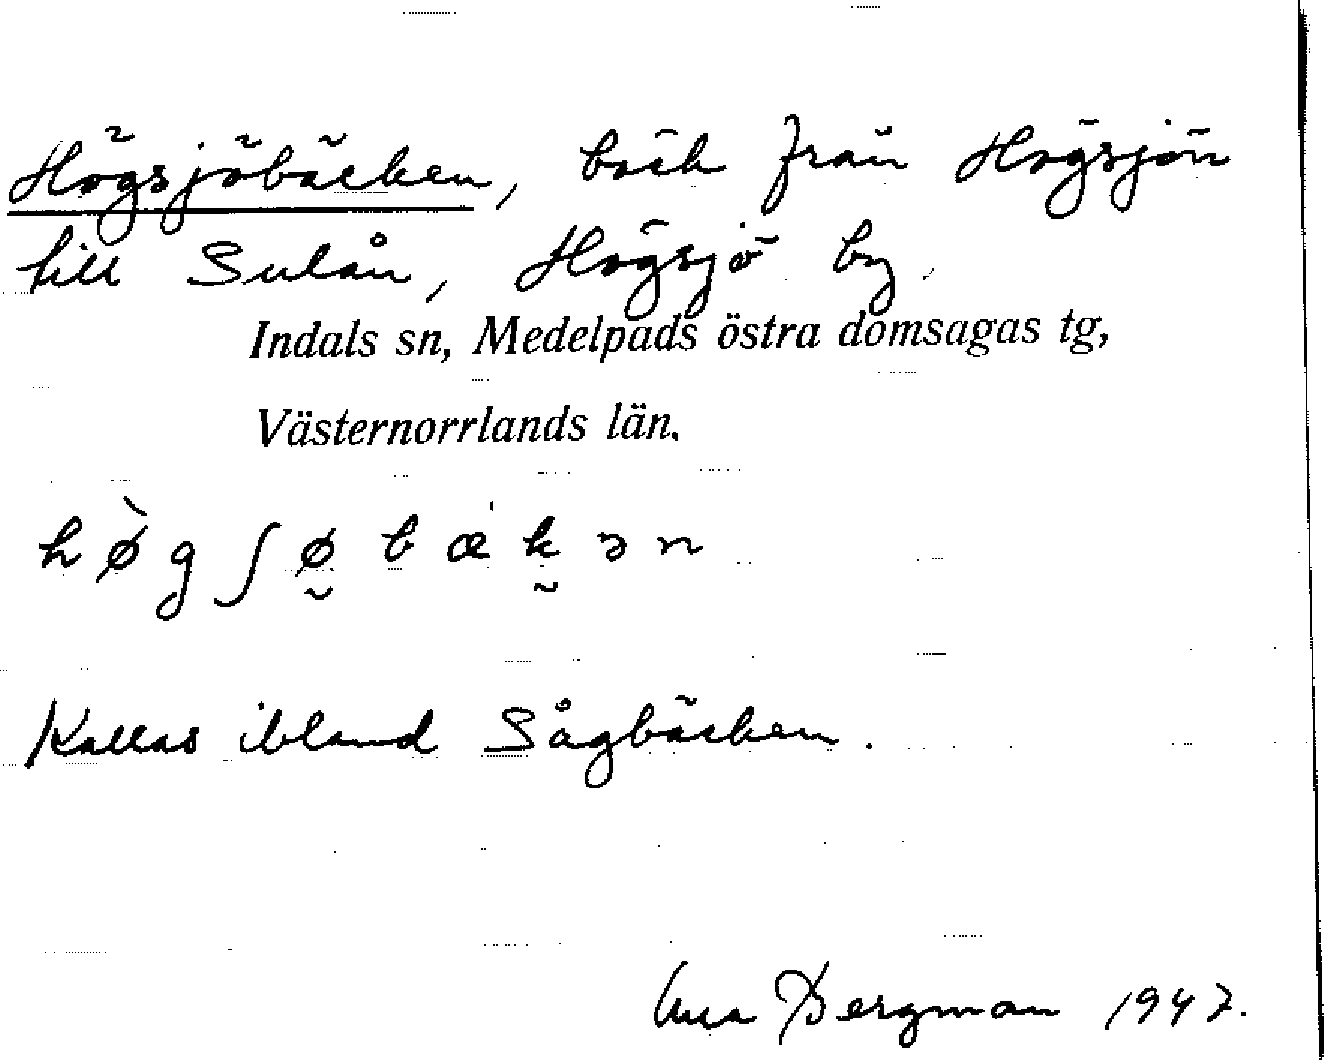 Högsjöbäcken, bäck från Högsjön
till Sulån, Högsjö by.
Indals sn, Medelpads östra domsagas tg,
Västernorrlands län.
hø̀gʃø̮bæ'k̮ən
Kallas ibland Sågbäcken.
Bergman 1947.